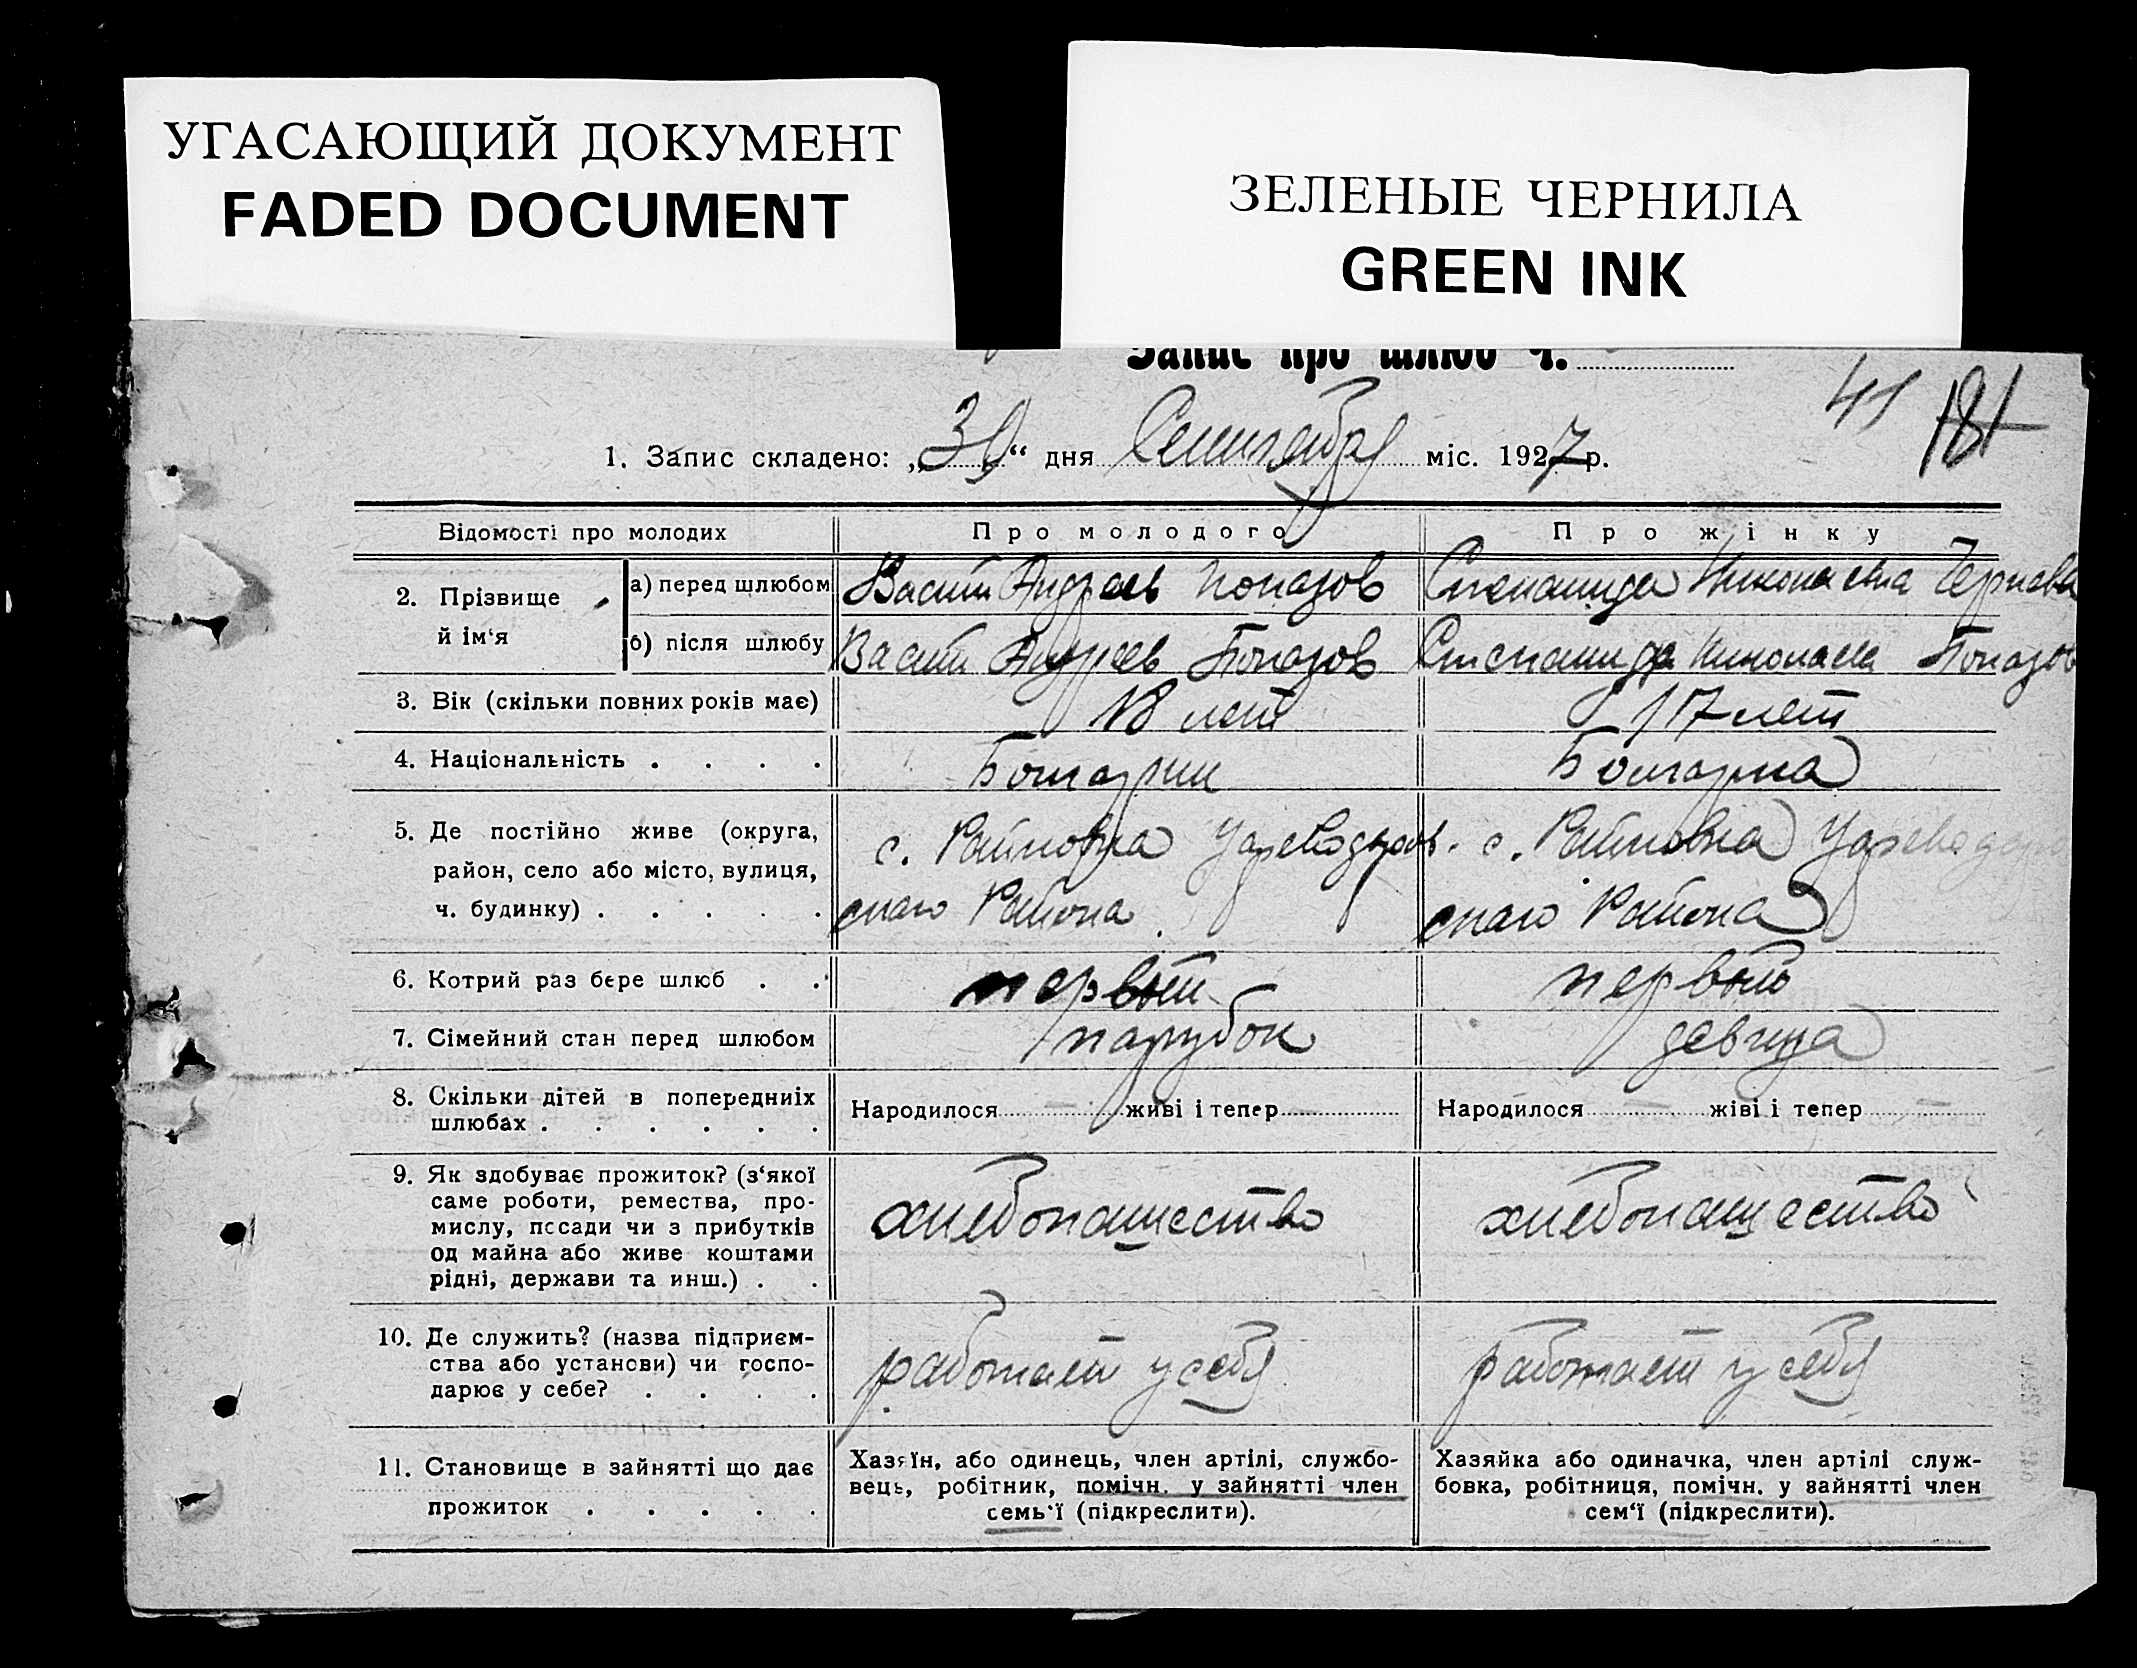 УГАСАЮЩИЙ ДОКУМЕНТ
FADED DOCUMENT
ЗЕЛЕНЫЕ ЧЕРНИЛА
GREEN INK
Запис про шлюб ч.
41 181
1. Запис складено: „30“ дня Сентября міс. 1927 р.
Відомості про молодих Про молодого Про жінку
2. Прізвище й ім‘я
а) перед шлюбом Васили Андреев Попазов Степанида Николаевна Чернева
б) після шлюбу Васили Андреев Попазов Степанида Николаева Попазов
3. Вік (скільки повних років має) 18 лет 17 лет
4. Національність . . . . Болгарин Болгарка
5. Де постійно живе (округа, с. Райновка Цареводаров- с. Райновка Цареводаров
район, село або місто, вулиця,
ч. будинку) . . . . . скаго Района. скаго Района
6. Котрий раз бере шлюб . . первый первый
7. Сімейний стан перед шлюбом парубок девица
8. Скільки дітей в попередниіх
шлюбах . . . . . . Народилося — живі і тепер Народилося — жіві і тепер —
9. Як здобуває прожиток? (з‘якої
саме роботи, ремества, про-
мислу, посади чи з прибутків хлебопашество хлебопашество
од майна або живе коштами
рідні, держави та инш.) . .
10. Де служить? (назва підприєм-
ства або установи) чи госпо- работает у себя работает у себя
дарює у себе? . . . .
11. Становище в зайнятті що дає
прожиток . . . . .
Хазяїн, або одинець, член артілі, службо-
вець, робітник, помічн. у зайнятті член
семь‘ї (підкреслити).
Хазяйка або одиначка, член артілі служ-
бовка, робітниця, помічн. у зайнятті член
сем‘ї (підкреслити).